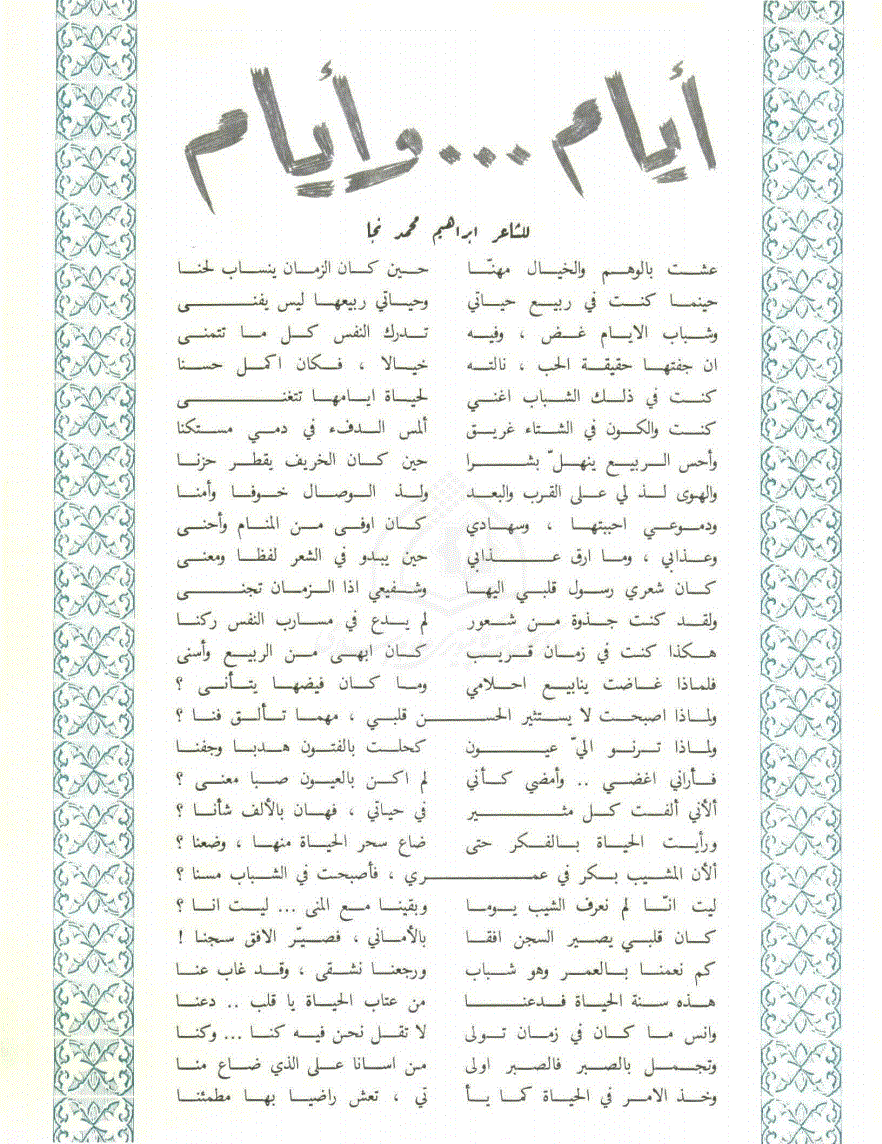 أيام ... وأيام
للشاعر ابراهيم محمد نجا
عشت بالوهم والخيال مهنّا حين كان الزمان ينساب لحنا
حينما كنت في ربيع حياتي وحياتي ربيعها ليس يفنى
وشباب الايام غض ، وفيه تدرك النفس كل ما تتمنى
ان جفتها حقيقة الحب ، نالته خيالا ، فكان اكمل حسنا
كنت في ذلك الشباب اغني لحياة ايامها تتغنى
كنت والكون في الشتاء غريق ألمس الدفء في دمي مستكنا
وأحس الربيع ينهلّ بشرا حين كان الخريف يقطر حزنا
والهوى لذ لي على القرب والبعد ولذ الوصال خوفا وأمنا
ودموعي احببتها ، وسهادي كان اوفى من المنام وأحنى
وعذابي ، وما ارق عذابي حين يبدو في الشعر لفظا ومعنى
كان شعري رسول قلبي اليها وشفيعي اذا الزمان تجنى
ولقد كنت جذوة من شعور لم يدع في مسارب النفس ركنا
هكذا كنت في زمان قريب كان ابهى من الربيع وأسنى
فلماذا غاضت ينابيع احلامي وما كان فيضها يتأنى ؟
ولماذا اصبحت لا يستثير الحسن قلبي ، مهما تألق فنا ؟
ولماذا ترنو اليّ عيون كحلت بالفتون هدبا وجفنا
فأراني اغضي .. وأمضي كأني لم اكن بالعيون صبا معنى ؟
ألأني ألفت كل مثير في حياتي ، فهان بالألف شأنا ؟
ورأيت الحياة بالفكر حتى ضاع سحر الحياة منها ، وضعنا ؟
ألأن المشيب بكر في عمري ، فأصبحت في الشباب مسنا ؟
ليت انّا لم نعرف الشيب يوما وبقينا مع المنى ... ليت انا ؟
كان قلبي يصير السجن افقا بالأماني ، فصيّر الافق سجنا !
كم نعمنا بالعمر وهو شباب ورجعنا نشقى ، وقد غاب عنا
هذه سنة الحياة فدعنا من عتاب الحياة يا قلب .. دعنا
وانس ما كان في زمان تولى لا تقل نحن فيه كنا ... وكنا
وتجمل بالصبر فالصبر اولى من اسانا على الذي ضاع منا
وخذ الامر في الحياة كما يأ تي ، تعش راضيا بها مطمئنا